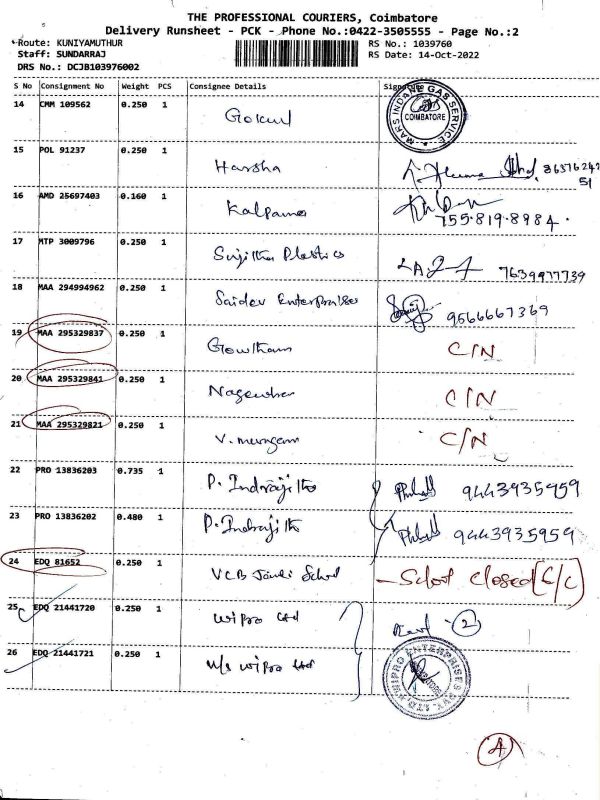 THE PROFESSIONAL COURIERS, Coimbatore
Delivery Runsheet - PCK - Phone No.:0422-3505555 - Page No.:2
Route: KUNIYAMUTHUR RS No.: 1039760
Staff: SUNDARRAJ RS Date: 14-Oct-2022
DRS No.: DCJB103976002
S No Consignment No Weight PCS Consignee Details Signature
14 CMM 109562 0.250 1 Gokul
MARS INDANE GAS SERVICE COIMBATORE
15 POL 91237 0.250 1 Harsha
16 AMD 25697403 0.160 1 Kalpana 755.819.8984.
17 MTP 3009796 0.250 1 Sujitha Plastics 7639977739
18 MAA 294994962 0.250 1 Saidev Enterprises 9566667369
19 MAA 295329837 0.250 1 Gowtham C/N
20 MAA 295329841 0.250 1 C/N
21 MAA 295329821 0.250 1 V. murugan C/N
22 PRO 13836203 0.735 1 P. Indrajith 9443935959
23 PRO 13836202 0.480 1 P. Indrajith 9443935959
24 EDQ 81652 0.250 1 School - School closed (C/C)
25 EDQ 21441720 0.250 1 Wipro Ltd 2
26 EDQ 21441721 0.250 1 M/s Wipro Ltd
WIPRO ENTERPRISES PVT. LTD.
A